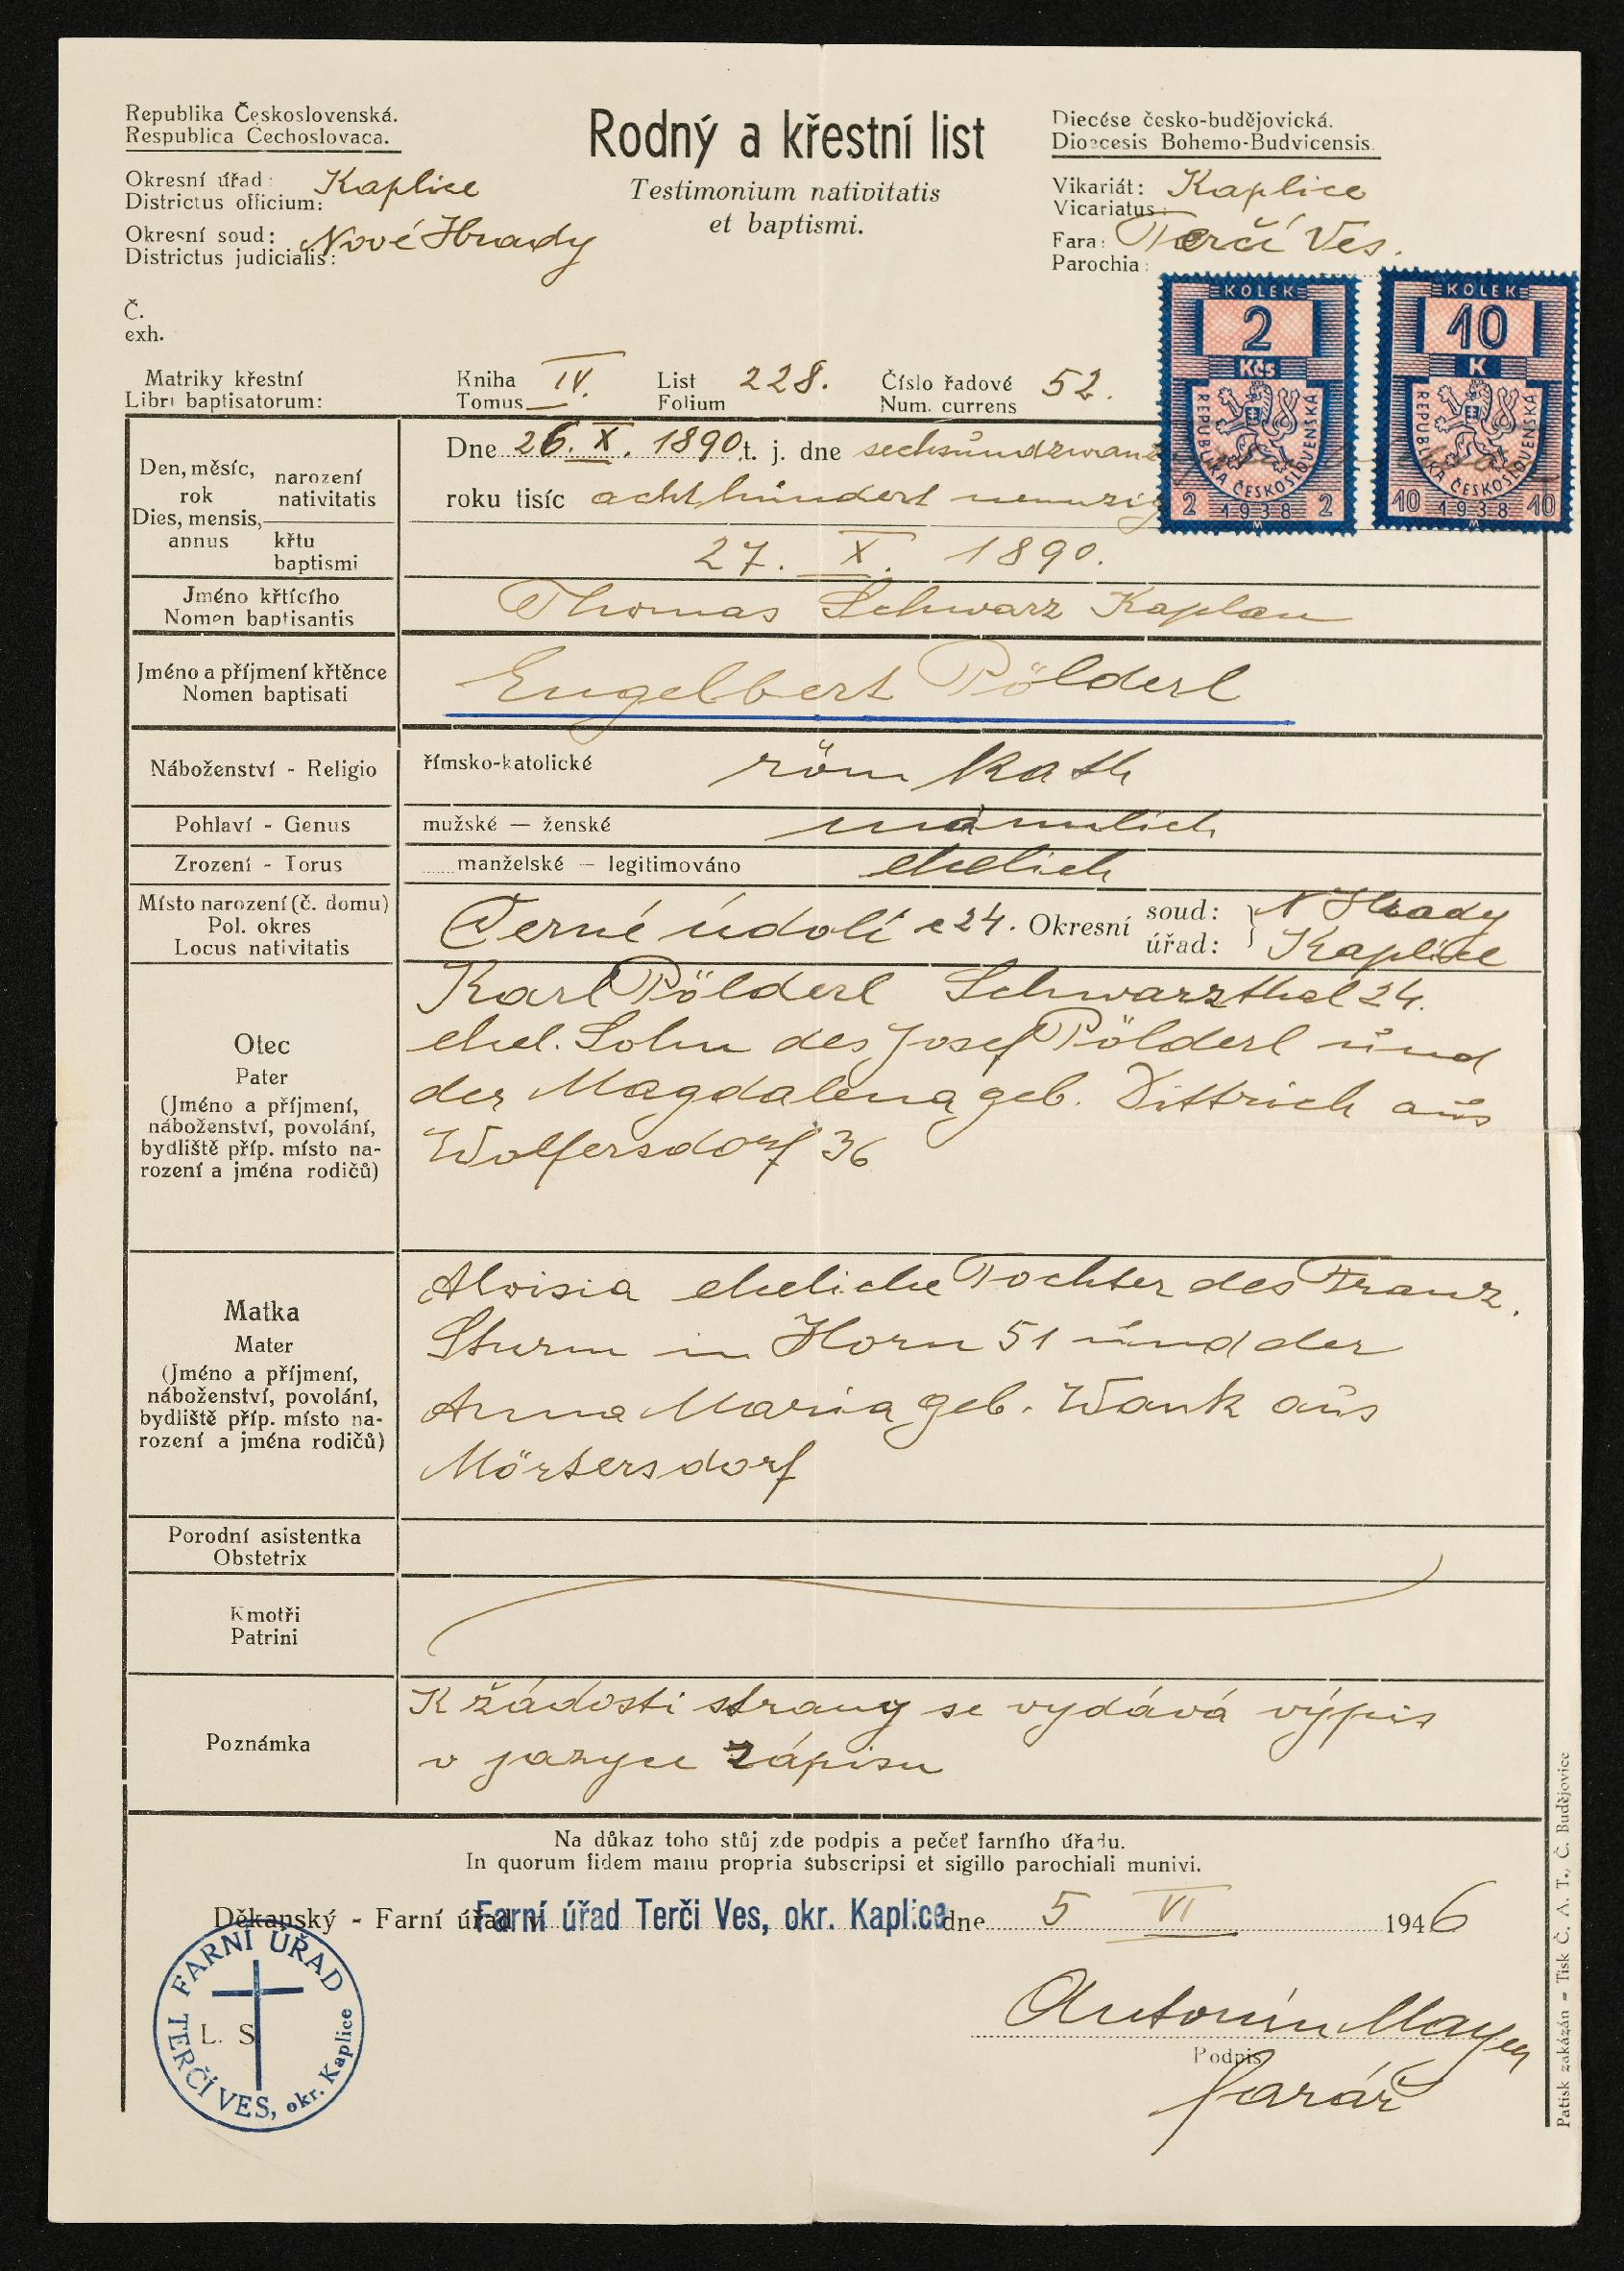 Republika Československá.
Respublica Čechoslovaca.
Okresní úřad: Kaplice
Districtus officium:
Okresní soud: Nové Hrady
Districtus judicialis:
Č.
exh.
Rodný a křestní list
Testimonium nativitatis
et baptismi.
Diecése česko-budějovická.
Dioecesis Bohemo-Budvicensis.
Vikariát: Kaplice
Vicariatus:
Fara: Terčí Ves.
Parochia:
KOLEK
2
Kčs
REPUBLIKA ČESKOSLOVENSKÁ
2 1938 2
M
KOLEK
10
K
REPUBLIKA ČESKOSLOVENSKÁ
10 1938 10
M
Matriky křestní Kniha IV. List 228. Číslo řadové 52.
Libri baptisatorum: Tomus Folium Num. currens
Den, měsíc, rok narození
Dies, mensis, annus nativitatis
křtu
baptismi
Dne 26. X. 1890 t. j. dne sechsundzwanz
roku tisíc achthundert neunzig
27. X. 1890.
Jméno křtícího Thomas Schwarz Kaplan
Nomen baptisantis
Jméno a příjmení křtěnce Engelbert Pölderl
Nomen baptisati
Náboženství - Religio římsko-katolické röm kath
Pohlaví - Genus mužské — ženské männlich
Zrození - Torus manželské — legitimováno ehelich
Místo narození (č. domu)
Pol. okres
Locus nativitatis
Černé údolí č 24. Okresní soud: N Hrady
úřad: Kaplice
Otec
Pater
(Jméno a příjmení,
náboženství, povolání,
bydliště příp. místo na-
rození a jména rodičů)
Karl Pölderl Schwarzthal 24.
ehel. Sohn des Josef Pölderl und
der Magdalena geb. Dittrich aus
Wolfersdorf 36
Matka
Mater
(Jméno a příjmení,
náboženství, povolání,
bydliště příp. místo na-
rození a jména rodičů)
Aloisia eheliche Tochter des Franz
Sturm in Horn 51 und der
Anna Maria geb. Wank aus
Mörtersdorf
Porodní asistentka
Obstetrix
Kmotři
Patrini
Poznámka
K žádosti strany se vydává výpis
v jazyce zápisu
Na důkaz toho stůj zde podpis a pečeť farního úřadu.
In quorum fidem manu propria subscripsi et sigillo parochiali munivi.
Děkanský - Farní úřad v Farní úřad Terči Ves, okr. Kaplice dne 5 VI 1946
FARNÍ ÚŘAD
TERČÍ VES, okr. Kaplice
L. S.
Antonín Mayer
Podpis
farář
Patisk zakázán – Tisk Č. A. T., Č. Budějovice